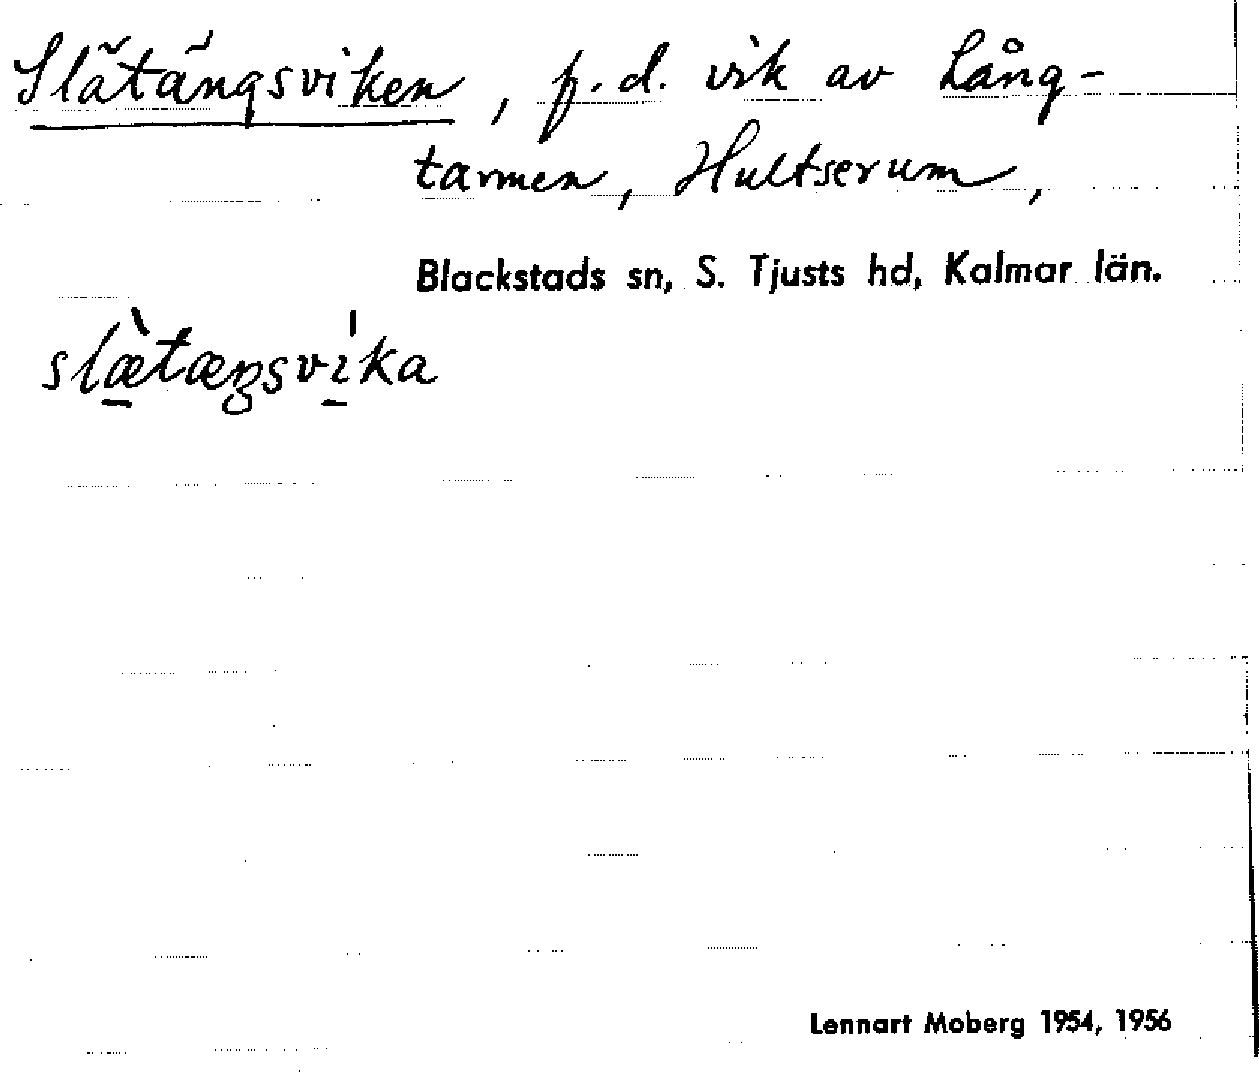 Slätängsviken, f.d. vik av Lång-
tarmen, Hultserum,
Blackstads sn, S. Tjusts hd, Kalmar län.
slæ̠̀tæŋsvi̠̍ka
Lennart Moberg 1954, 1956